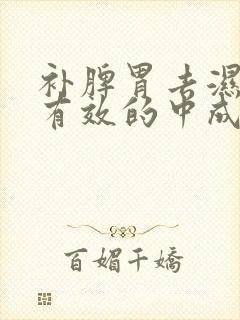 补脾胃去湿
有效的中成
百媚千嬌